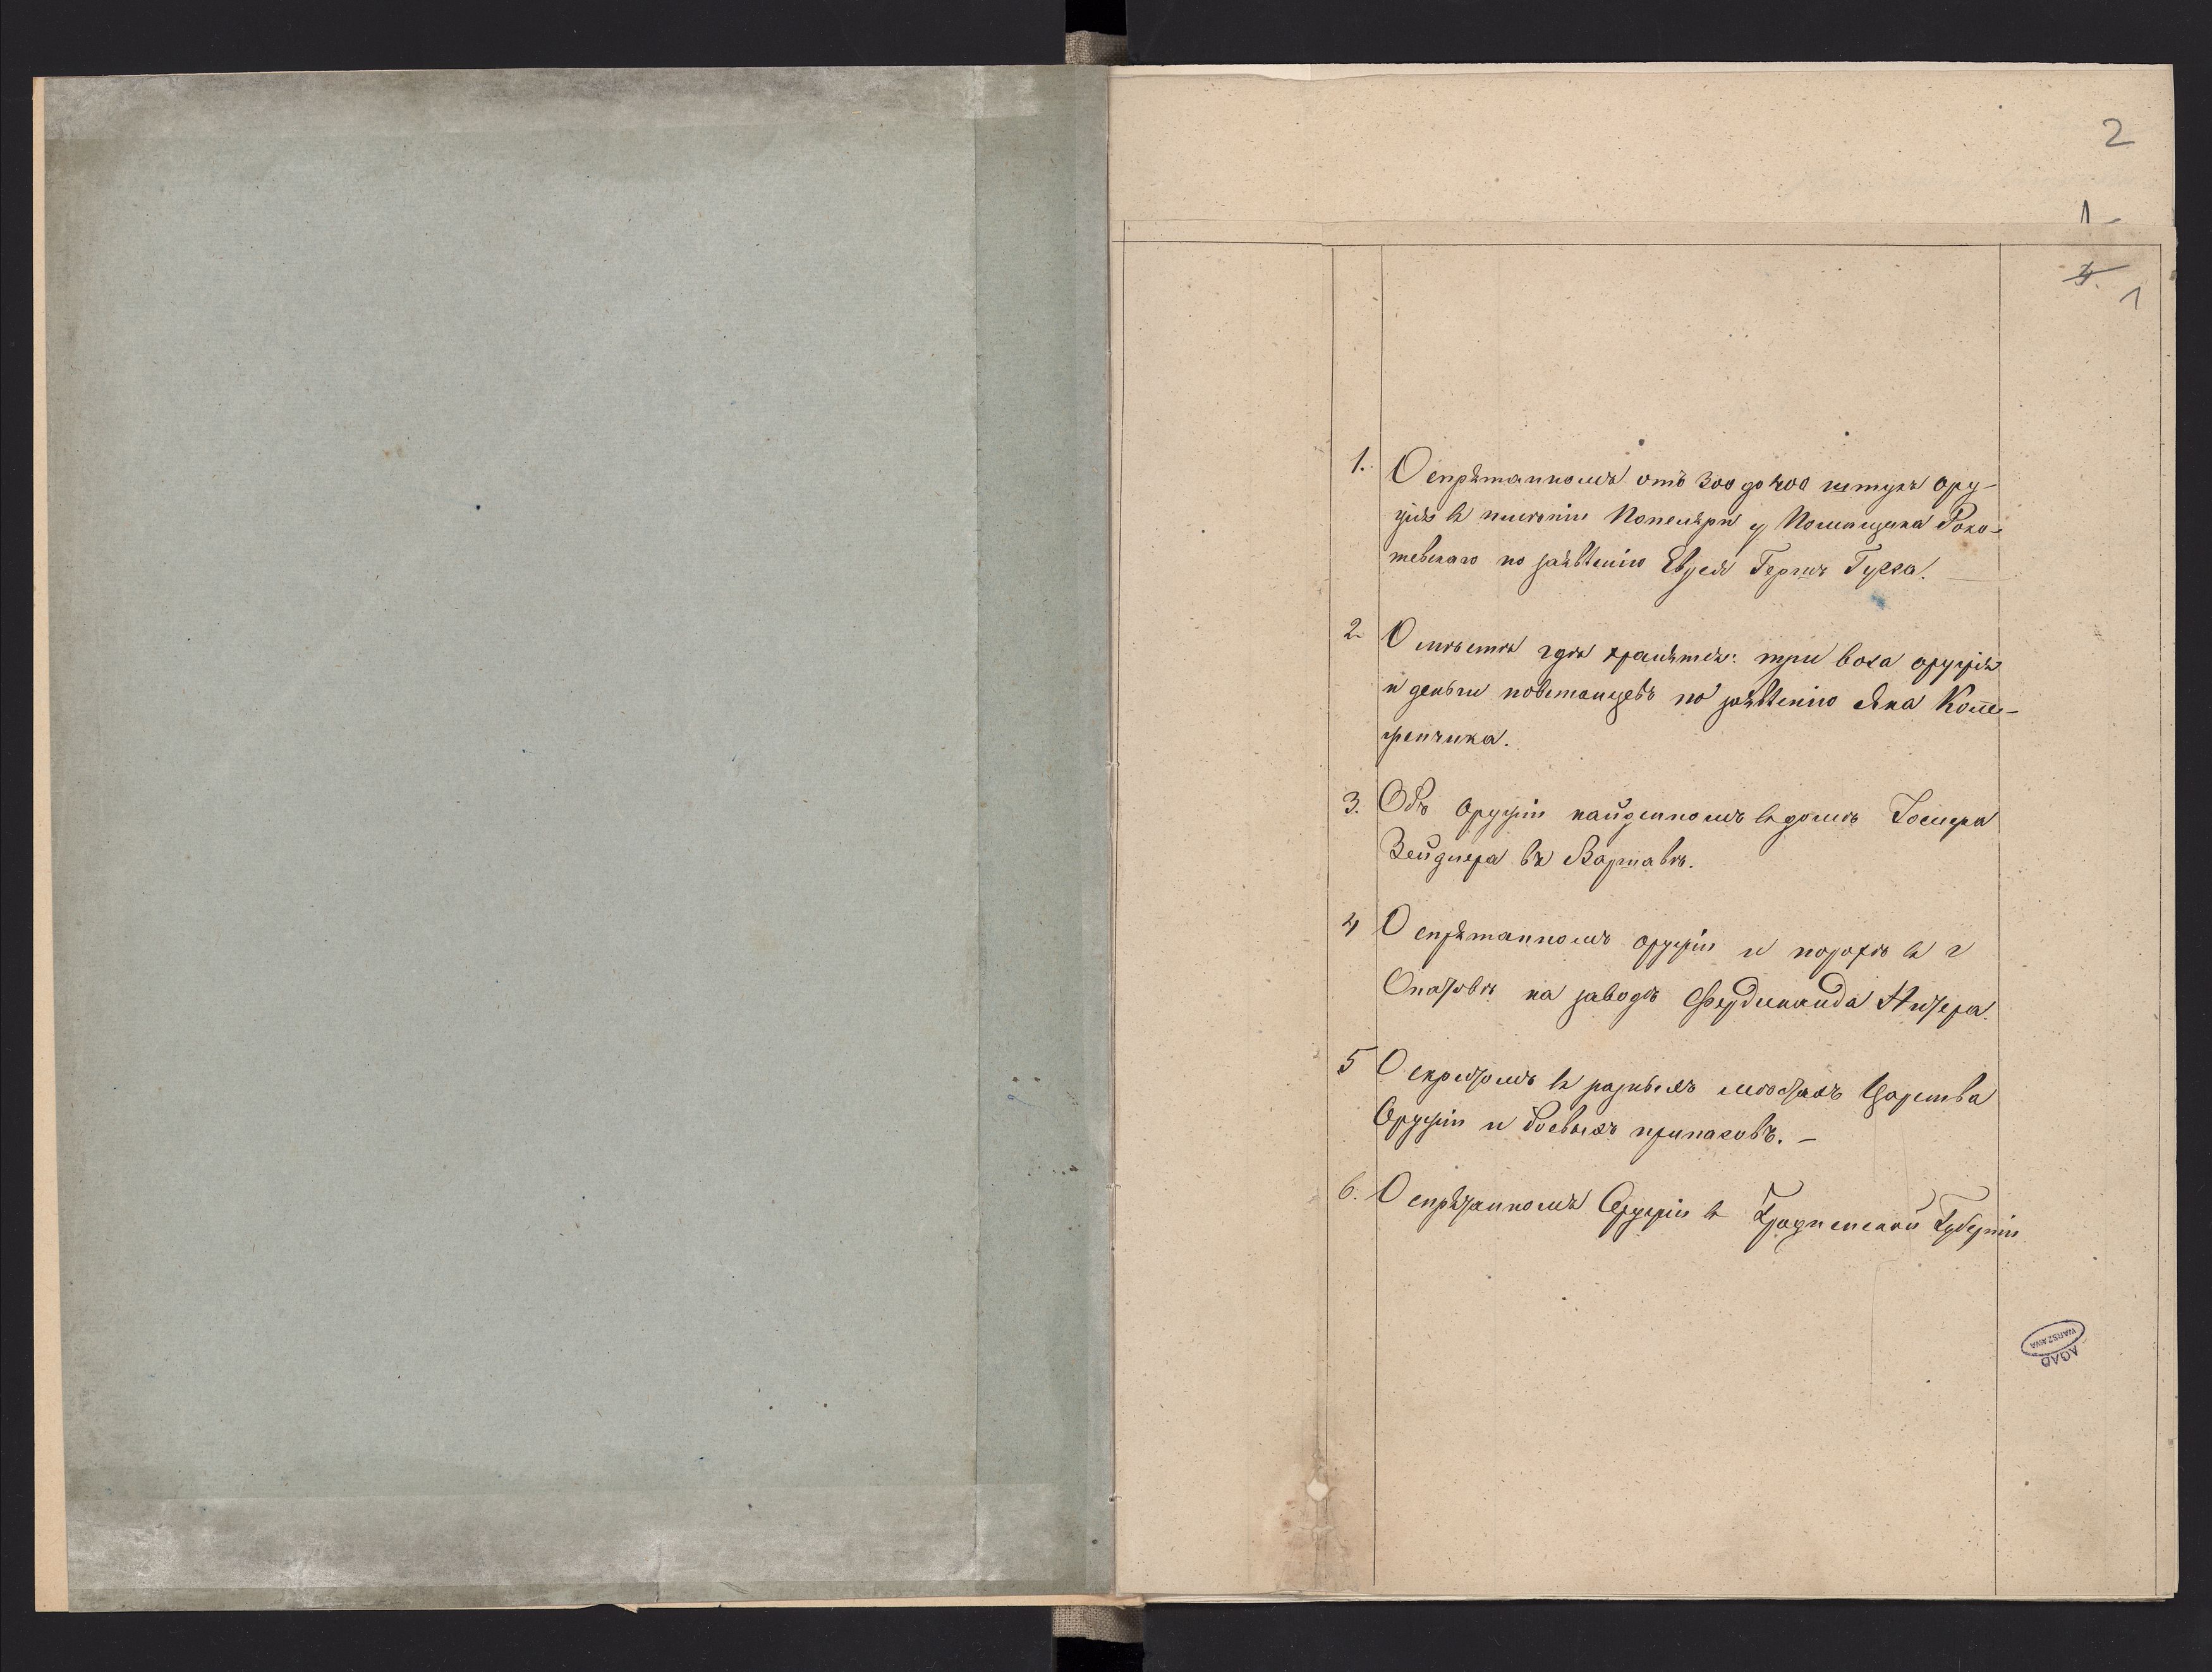 2
1-
3.
1
1. О спрятанномъ отъ 300 до 400 штукъ ору-
жія въ имѣніи Попеляры у Помѣщика Роко-
шевскаго по заявленію Еврея Гершъ Гусса.
2. О мѣстѣ гдѣ хранятся: три воза оружія
и деньги повстанцевъ по заявленію Яна
3. Объ Оружіи найденномъ въ домѣ Іосифа
Зейдлера въ Варшавѣ.
4 О спрятанномъ оружіи и порохѣ въ г
Опатовѣ на заводѣ Фердинанда
5 О скрытомъ въ разныхъ мѣстахъ Царства
Оружіи и боевыхъ припасовъ. –
6. О спрятанномъ Оружіи въ Гродненской Губерніи
AGAD
WARSZAWA